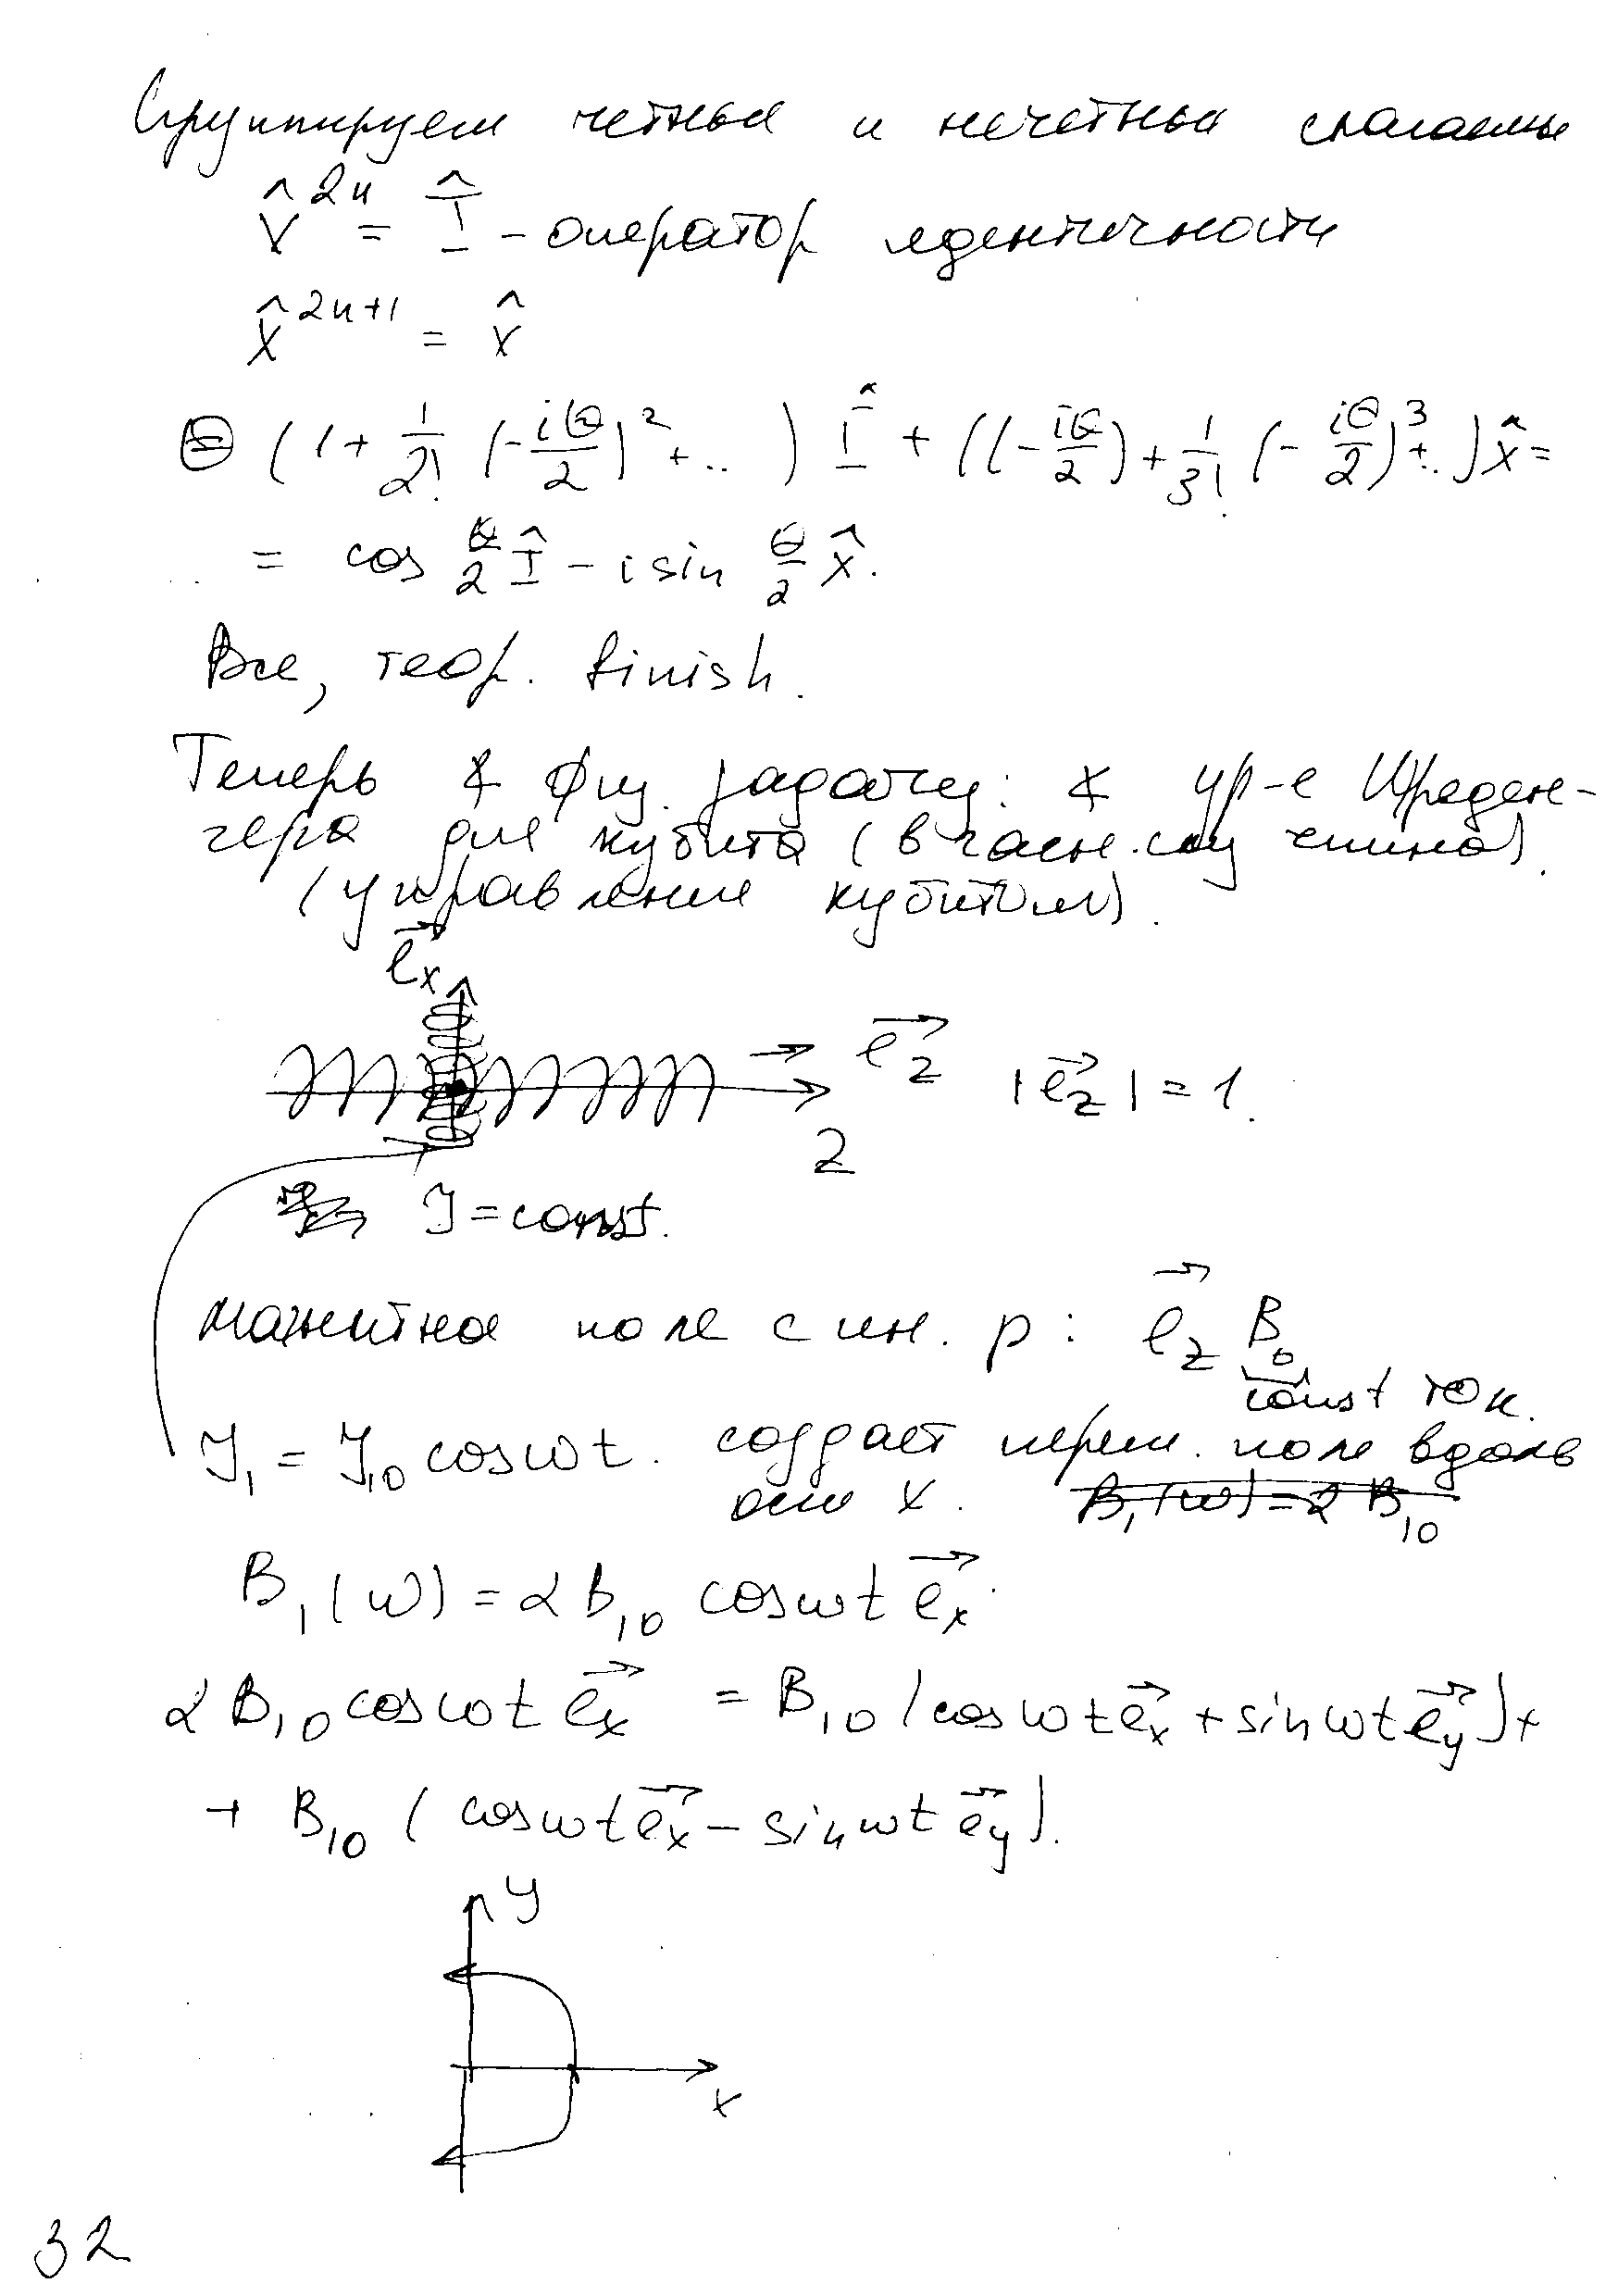 Сгруппируем четные и нечетные слагаемые
X̂²ⁿ = Î - оператор идентичности
X̂²ⁿ⁺¹ = X̂
⊜ (1 + 1/2! (-iθ/2)² + ..) Î + ((-iθ/2) + 1/3! (-iθ/2)³ + ..) X̂ =
= cos θ/2 Î - i sin θ/2 X̂.
Все, теор. finish.
Теперь & физ. задачу: & ур-е Шреден-
гера для кубита (в частн. слу спина).
(управление кубитом).
e⃗x
e⃗z |e⃗z| = 1.
z
J = const.
магнитное поле с ин. р: e⃗z B₀
const ток.
J₁ = J₁₀ cosωt. создает перем. поле вдоль
оси x. B₁(ω) = 2 B₁₀
B₁(ω) = 2B₁₀ cosωt e⃗x.
2B₁₀ cosωt e⃗x = B₁₀ (cosωt e⃗x + sinωt e⃗y) +
+ B₁₀ (cosωt e⃗x - sinωt e⃗y).
y
x
32